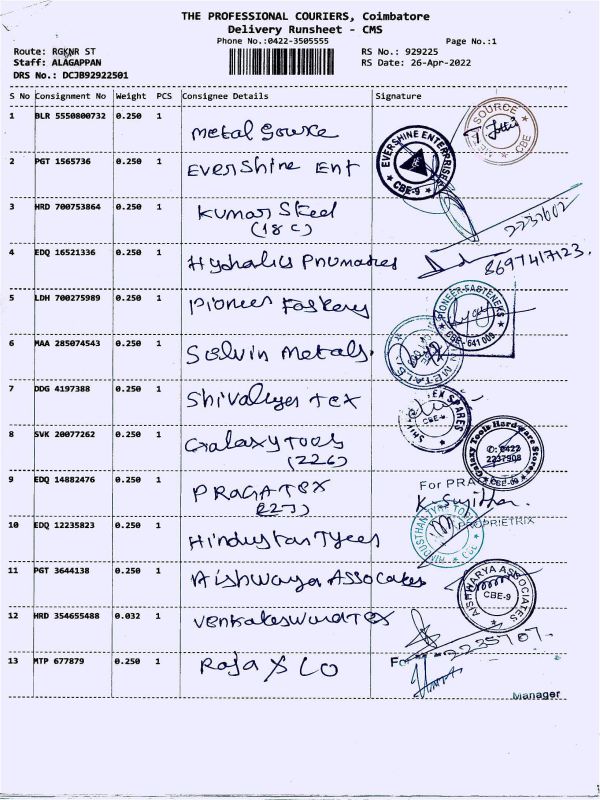 THE PROFESSIONAL COURIERS, Coimbatore
Delivery Runsheet - CMS
Phone No.:0422-3505555
Page No.:1
Route: RGKNR ST
RS No.: 929225
Staff: ALAGAPPAN
RS Date: 26-Apr-2022
DRS No.: DCJB92922501
S No Consignment No Weight PCS Consignee Details Signature
1 BLR 5550800732 0.250 1 Metal Source
SOURCE CBE
2 PGT 1565736 0.250 1 Evershine Ent
EVERSHINE ENTERPRISES CBE-9
3 HRD 700753864 0.250 1 Kumar Steel
(18 C)
2237602
4 EDQ 16521336 0.250 1 Hydralics Pnumatics
8697417123.
5 LDH 700275989 0.250 1
Pioneer
PIONEER FASTENERS CBE-641 009
6 MAA 285074543 0.250 1 Selvin Metals.
METALS
7 DDG 4197388 0.250 1 Shivalyer Tex
TEX SPARES CBE-9
8 SVK 20077262 0.250 1 Galaxy Tools
(226)
Galaxy Tools Hardware Stores ✆: 0422 2237908 CBE-09
9 EDQ 14882476 0.250 1 PRAGATEX
(227)
For PRA
K. Sujitha.
PROPRIETRIX
10 EDQ 12235823 0.250 1 Hindustan Tyres
HINDUSTHAN TYRE CBE
11 PGT 3644138 0.250 1 Aishwarya Assocates
AISHWARYA ASSOCIATES CBE-9
12 HRD 354655488 0.032 1 Venkateswara Tex
2235707.
13 MTP 677879 0.250 1 Raja & Co
For
Manager